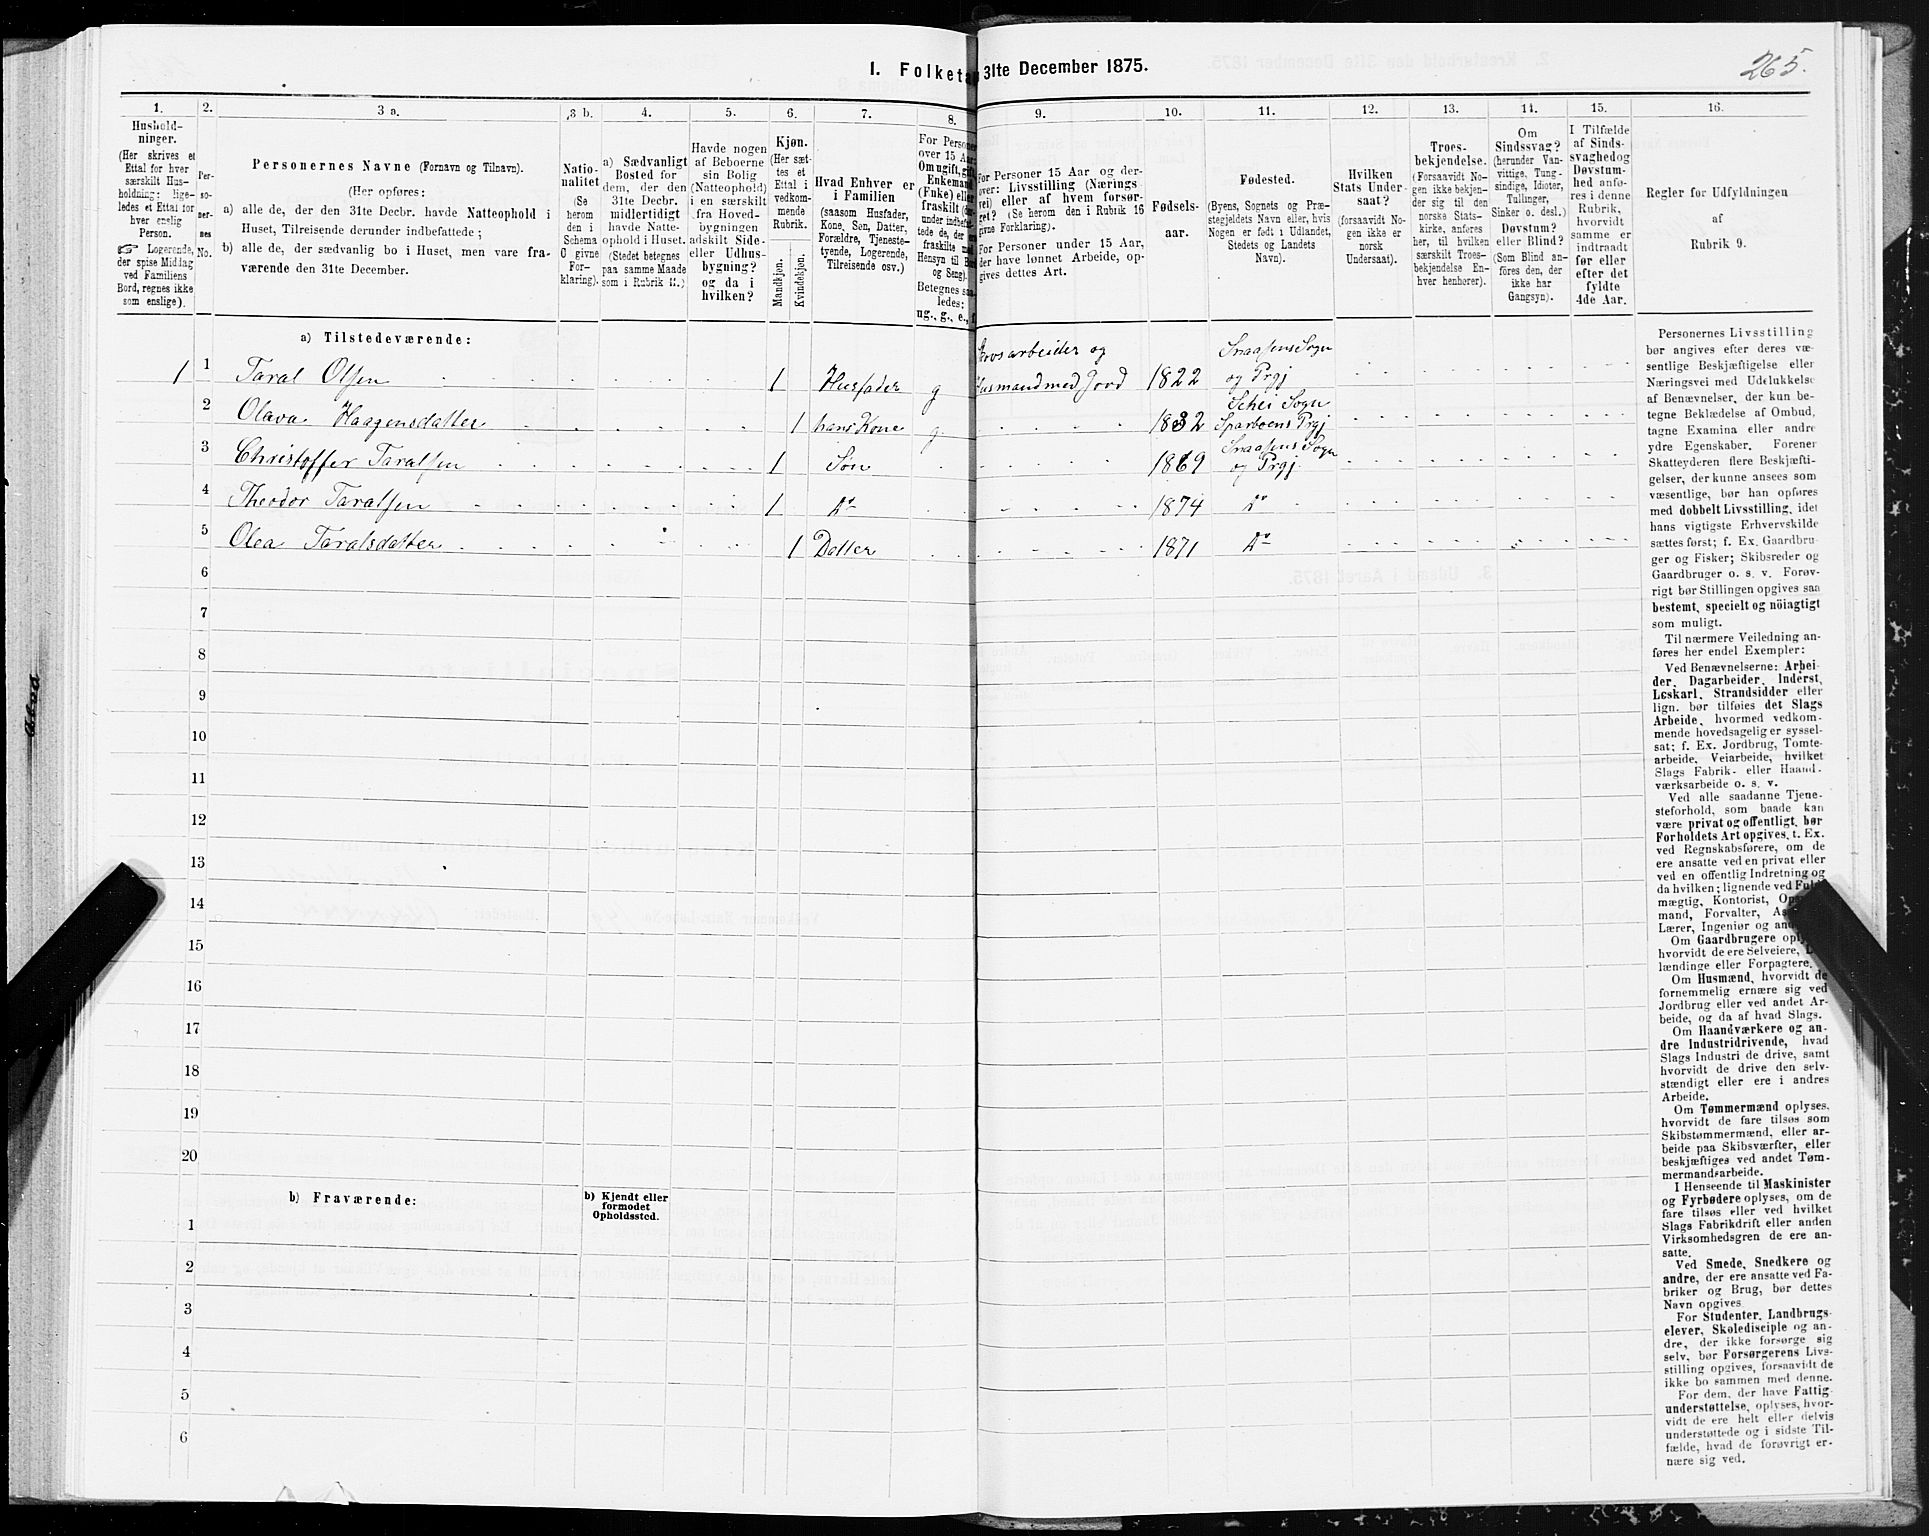 265.
I. Folketæ 31te December 1875.
1.
Hushold-
ninger.
(Her skrives et
Ettal for hver
særskilt Hus-
holdning; lige-
ledes et Ettal for
hver enslig
Person.
☞ Logerende,
der spise Middag
ved Familiens
Bord, regnes ikke
som enslige).
2.
Per-
so-
ner-
nes
No.
3 a.
Personernes Navne (Fornavn og Tilnavn).
(Her opføres:
a) alle de, der den 31te Decbr. havde Natteophold i
Huset, Tilreisende derunder indbefattede;
b) alle de, der sædvanlig bo i Huset, men vare fra-
værende den 31te December.
3 b.
Natio-
nalitet
(Se
herom
den i
Schema
6 givne
For-
klaring).
4.
a) Sædvanligt
Bosted for
dem, der den
31te Decbr.
midlertidigt
havde Natte-
ophold i Huset.
(Stedet betegnes
paa samme Maade
som i Rubrik 11.)
5.
Havde nogen
af Beboerne
sin Bolig
(Natteophold)
i en særskilt
fra Hoved-
bygningen
adskilt Side-
eller Udhus-
bygning?
og da i
hvilken?
6.
Kjøn.
(Her sæt-
tes et
Ettal i
vedkom-
mende
Rubrik.
Mandkjøn.
Kvindekjøn.
7.
Hvad Enhver er
i Familien
(saasom Husfader,
Kone, Søn, Datter,
Forældre, Tjeneste-
tyende, Logerende,
Tilreisende osv.)
8.
For Personer
over 15 Aar:
Omugift, gift,
Enkemand
(Enke) eller
fraskilt
Hensyn til Bord
og Seng).
Betegnes saa-
ledes:
ug., g., e., f.
9.
For Personer 15 Aar og der-
over: Livsstilling (Nærings-
vei) eller af hvem forsør-
get? (Se herom den i Rubrik 16
givne Forklaring).
For Personer under 15 Aar,
der have lønnet Arbeide, op-
gives dettes Art.
10.
Fødsels-
aar.
11.
Fødested.
(Byens, Sognets og Præ-
stegjeldets Navn eller, hvis
Nogen er født i Udlandet,
Stedets og Landets
Navn).
12.
Hvilken
Stats Under-
saat?
(forsaavidt No-
gen ikke er
norsk
Undersaat).
13.
Troes-
bekjendelse.
(Forsaavidt No-
gen ikke bekjen-
der sig til den
norske Stats-
kirke, anføres
her, til hvilken
særskilt Troes-
bekjendelse En-
hver henhører).
14.
Om
Sindssvag?
(herunder Van-
vittige, Tung-
sindige, Idioter,
Tullinger,
Sinker o. desl.)
Døvstum?
eller Blind?
(Som Blind an-
føres den, der
ikke har
Gangsyn).
15.
I Tilfælde
af Sinds-
svaghedog
Døvstum-
hed anfø-
res i denne
Rubrik,
hvorvidt
samme er
indtraadt
før eller
efter det
fyldte
4de Aar.
16.
Regler for Udfyldningen
af
Rubrik 9.
a) Tilstedeværende:
1 1 Taral Olsen 1 Husfader g arbeider og Husmand med Jord 1822 Snaasens Sogn og Prgj
2 Olava Haagensdatter 1 hans Kone g 1832 Schei Sogn Sparboens Prgj
3 Christoffer Taralsen 1 Søn 1869 Snaasens Sogn og Prgj.
4 Theodor Taralsen 1 Do 1874 Do
5 Olea Taralsdatter 1 Datter 1871 Do
6
7
8
9
10
11
12
13
14
15
16
17
18
19
20
b) Fraværende:
b) Kjendt eller
formodet
Opholdssted.
1
2
3
4
5
6
Personernes Livsstilling
bør angives efter deres væ-
sentlige Beskjæftigelse eller
Næringsvei med Udelukkelse
af Benævnelser, der kun be-
tegne Beklædelse af Ombud,
tagne Examina eller andre
ydre Egenskaber. Forener
Skatteyderen flere Beskjæfti-
gelser, der kunne ansees som
væsentlige, bør han opføres
med dobbelt Livsstilling, idet
hans vigtigste Erhvervskilde
sættes først; f. Ex. Gaardbru-
ger og Fisker; Skibsreder og
Gaardbruger o. s. v. Forøv-
rigt bør Stillingen opgives saa
bestemt, specielt og nöiagtigt
som muligt.
Til nærmere Veiledning an-
føres her endel Exempler:
Ved Benævnelserne: Arbei-
der, Dagarbeider, Inderst,
Løskarl, Strandsidder eller
lign. bør tilføies det Slags
Arbeide, hvormed vedkom-
mende hovedsagelig er syssel-
sat; f. Ex. Jordbrug, Tomte-
arbeide, Veiarbeide, hvilket
Slags Fabrik- eller Haand-
værksarbeide o. s. v.
Ved alle saadanne Tjene-
steforhold, som baade kan
være privat og offentligt, bør
Forholdets Art opgives, t. Ex.
ved Regnskabsførere, om de
ere ansatte ved en privat eller
ved en offentlig Indretning og
da hvilken; lignende ved Fuld-
mægtig, Kontorist, Ops
mand, Forvalter, As
Lærer, Ingeniør og and
Om Gaardbrugere oply
hvorvidt de ere Selveiere, L
lændinge eller Forpagtere.
Om Husmænd, hvorvidt de
fornemmelig ernære sig ved
Jordbrug eller ved andet Ar-
beide, og da af hvad Slags.
Om Haandværkere og an-
dre Industridrivende, hvad
Slags Industri de drive, samt
hvorvidt de drive den selv-
stændigt eller ere i andres
Arbeide.
Om Tømmermænd oplyses,
hvorvidt de fare tilsøs som
Skibstømmermænd, eller ar-
beide paa Skibsværfter, eller
beskjæftiges ved andet Tøm-
mermandsarbeide.
I Henseende til Maskinister
og Fyrbødere oplyses, om de
fare tilsøs eller ved hvilket
Slags Fabrikdrift eller anden
Virksomhedsgren de ere an-
satte.
Ved Smede, Snedkere og
andre, der ere ansatte ved Fa-
briker og Brug, bør dettes
Navn opgives
For Studenter, Landbrugs-
elever, Skoledisciple og an-
dre, der ikke forsørge sig
selv, bør Forsørgerens Livs-
stilling opgives, forsaavidt de
ikke bo sammen med denne.
For dem, der have Fattig-
understøttelse, oplyses, hvor-
vidt de ere helt eller delvis
understøttede og i sidste Til-
fælde, hvad de forøvrigt er-
nære sig ved.